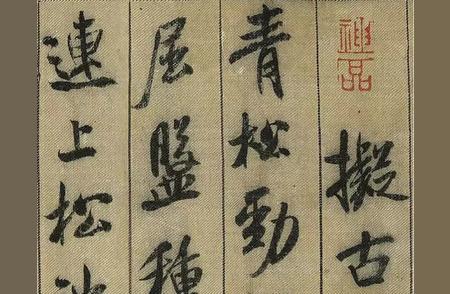 神品
擬古
青松勁
屈盤種
連上松